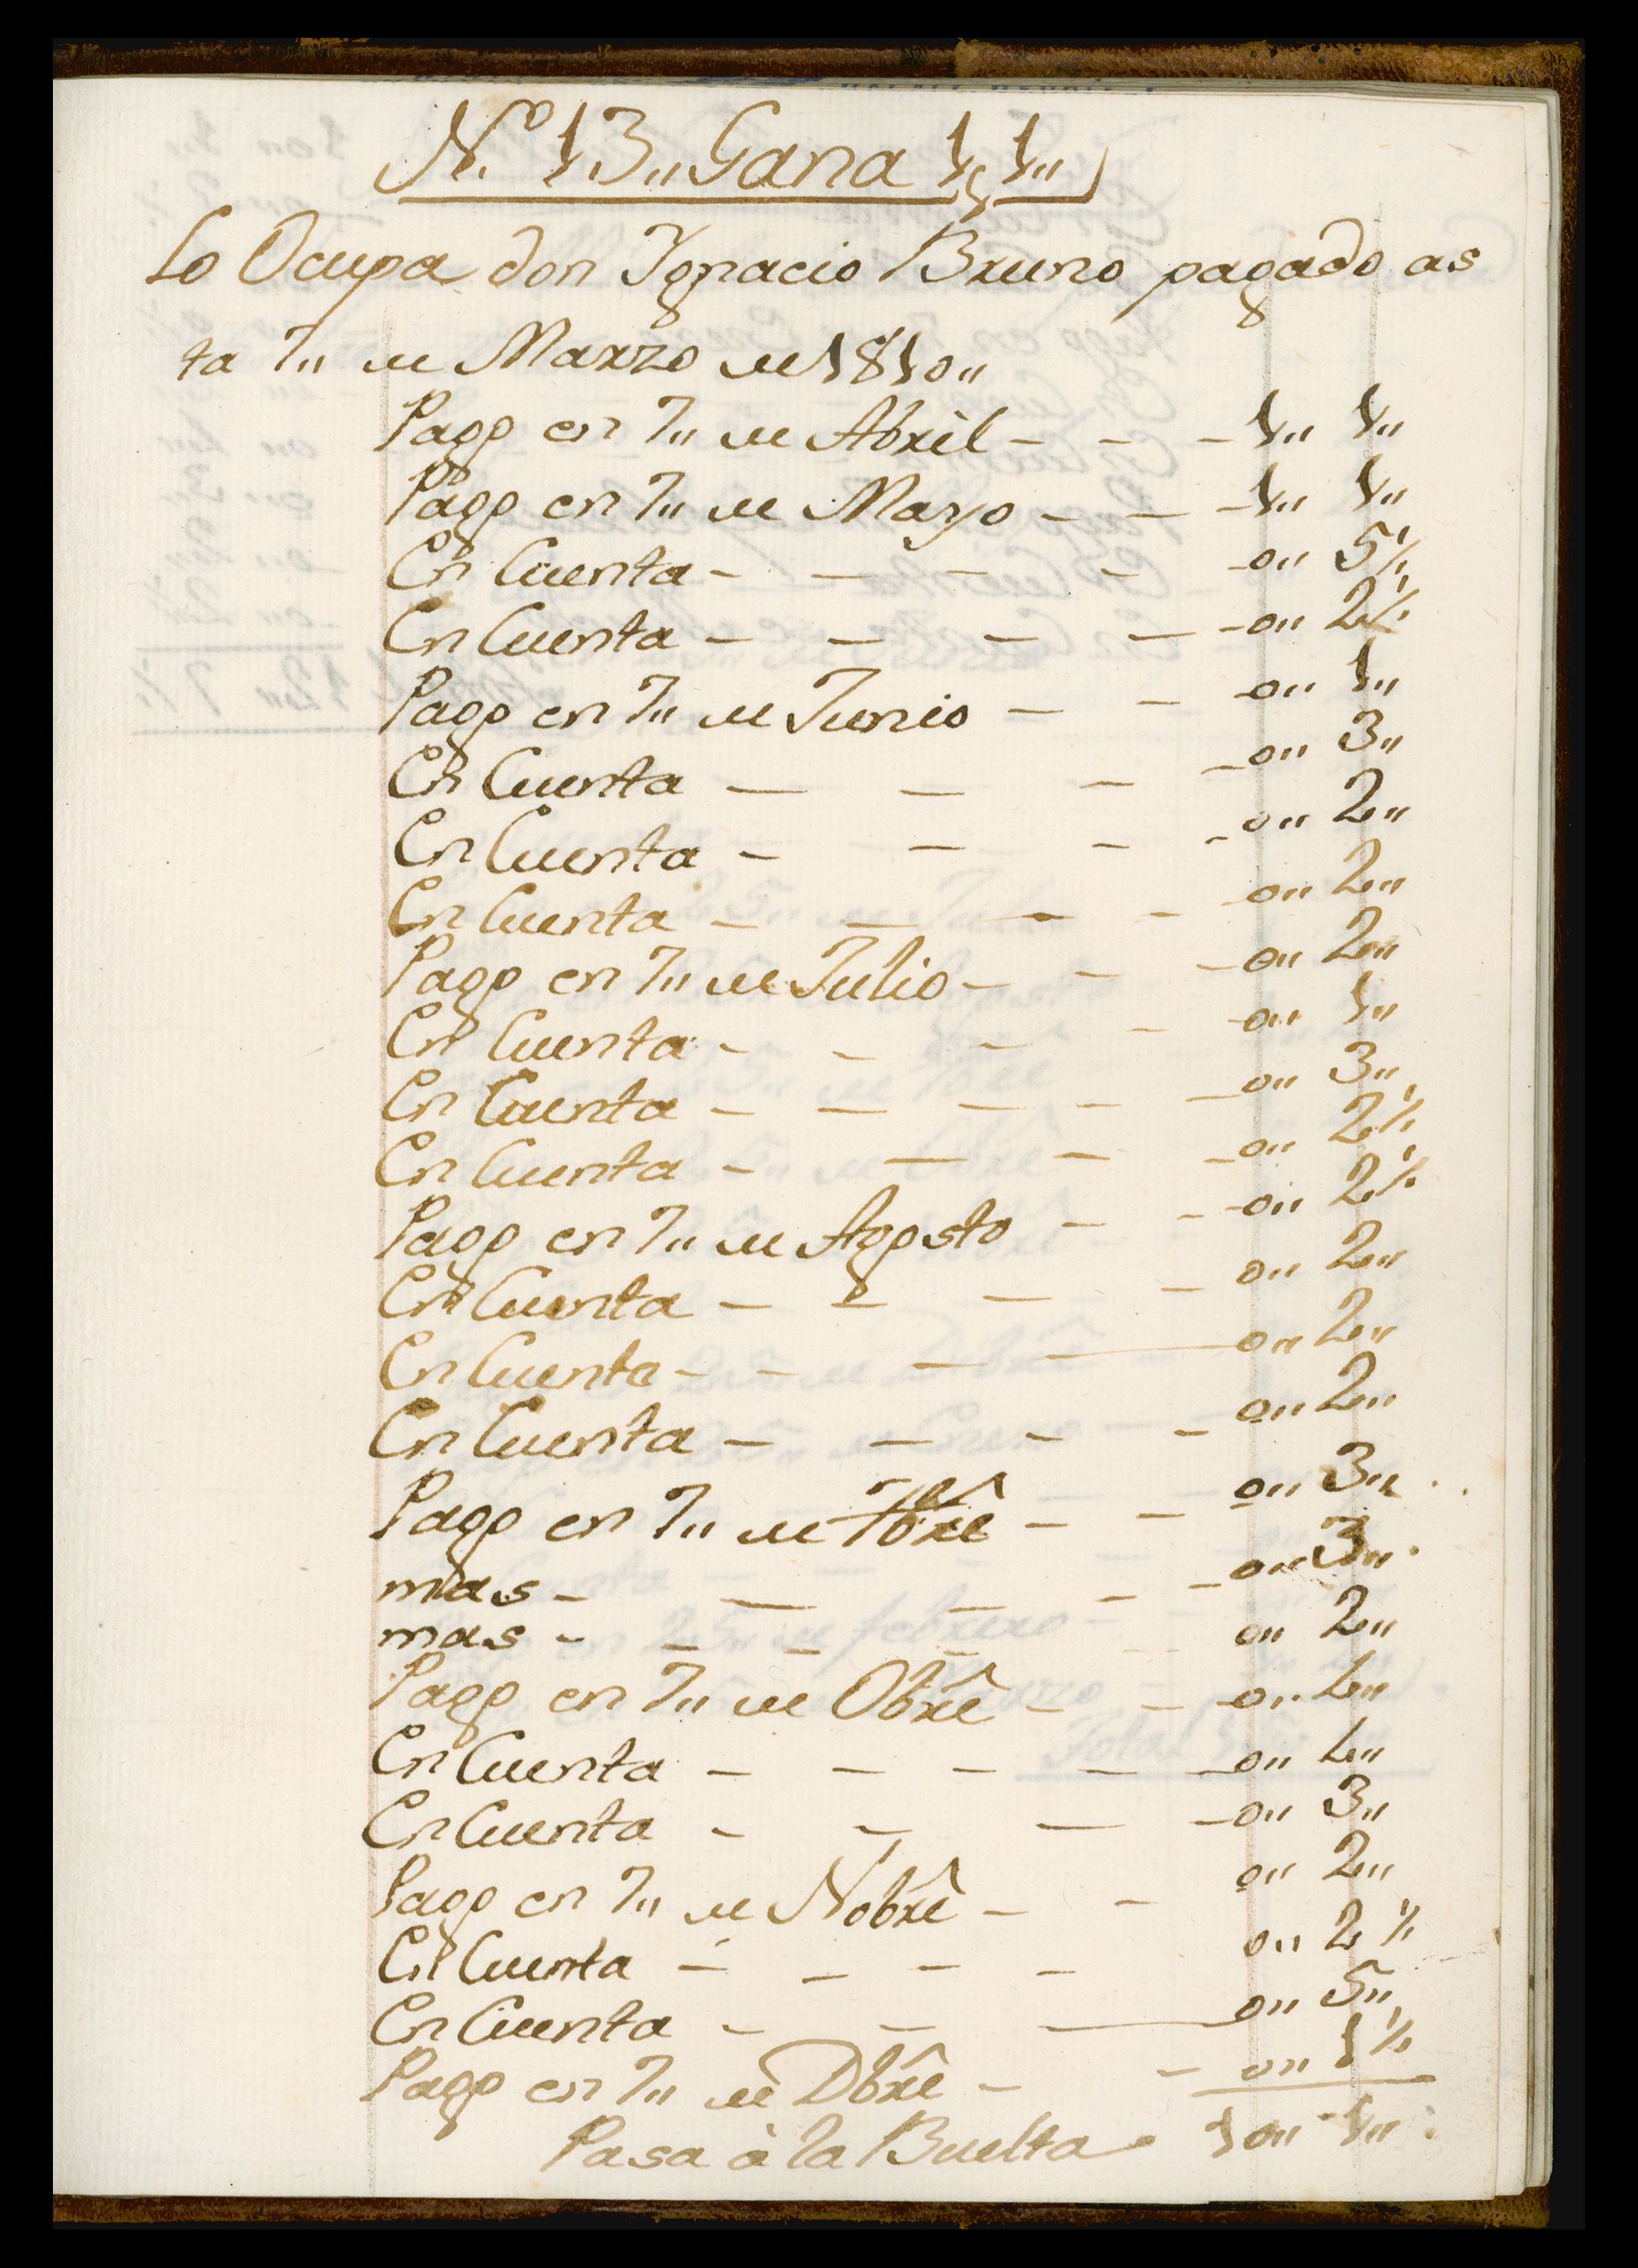 Nº 13,, Gana 1,, 1,,
Lo Ocupa don Ygnacio Bruno pagado as
ta 7,, de Marzo de 1810,,
Pago en 7,, de Abril - - - 1,, 1,,
Pago en 7,, de Mayo - - - 1,, 1,,
En Cuenta - - - - - 0,, 5½
En Cuenta - - - - - 0,, 2½
Pago en 7,, de Junio - - - 0,, 1,,
En Cuenta - - - - 0,, 3,,
En Cuenta - - - - 0,, 2,,
En Cuenta - - - - 0,, 2,,
Pago en 7,, de Julio - - - 0,, 2,,
En Cuenta - - - - - 0,, 1,,
En Cuenta - - - - - 0,, 3,,
En Cuenta - - - - 0,, 2½
Pago en 7,, de Agosto - - - 0,, 2½
En Cuenta - - - - 0,, 2,,
En Cuenta - - - - 0,, 2,,
En Cuenta - - - - 0,, 2,,
Pago en 7,, de 7bre - - 0,, 3,,
mas - - - - - 0,, 3,,
mas - - - - 0,, 2,,
Pago en 7,, de Obre - - - 0,, 4,,
En Cuenta - - - - - 0,, 4,,
En Cuenta - - - - 0,, 3,,
Pago en 7,, de Nobre - - 0,, 2,,
En Cuenta - - - - 0,, 2½
En Cuenta - - - 0,, 5,,
Pago en 7,, de Dbre - - 0,, 1½
Pasa à la Buelta 10,, 1,,